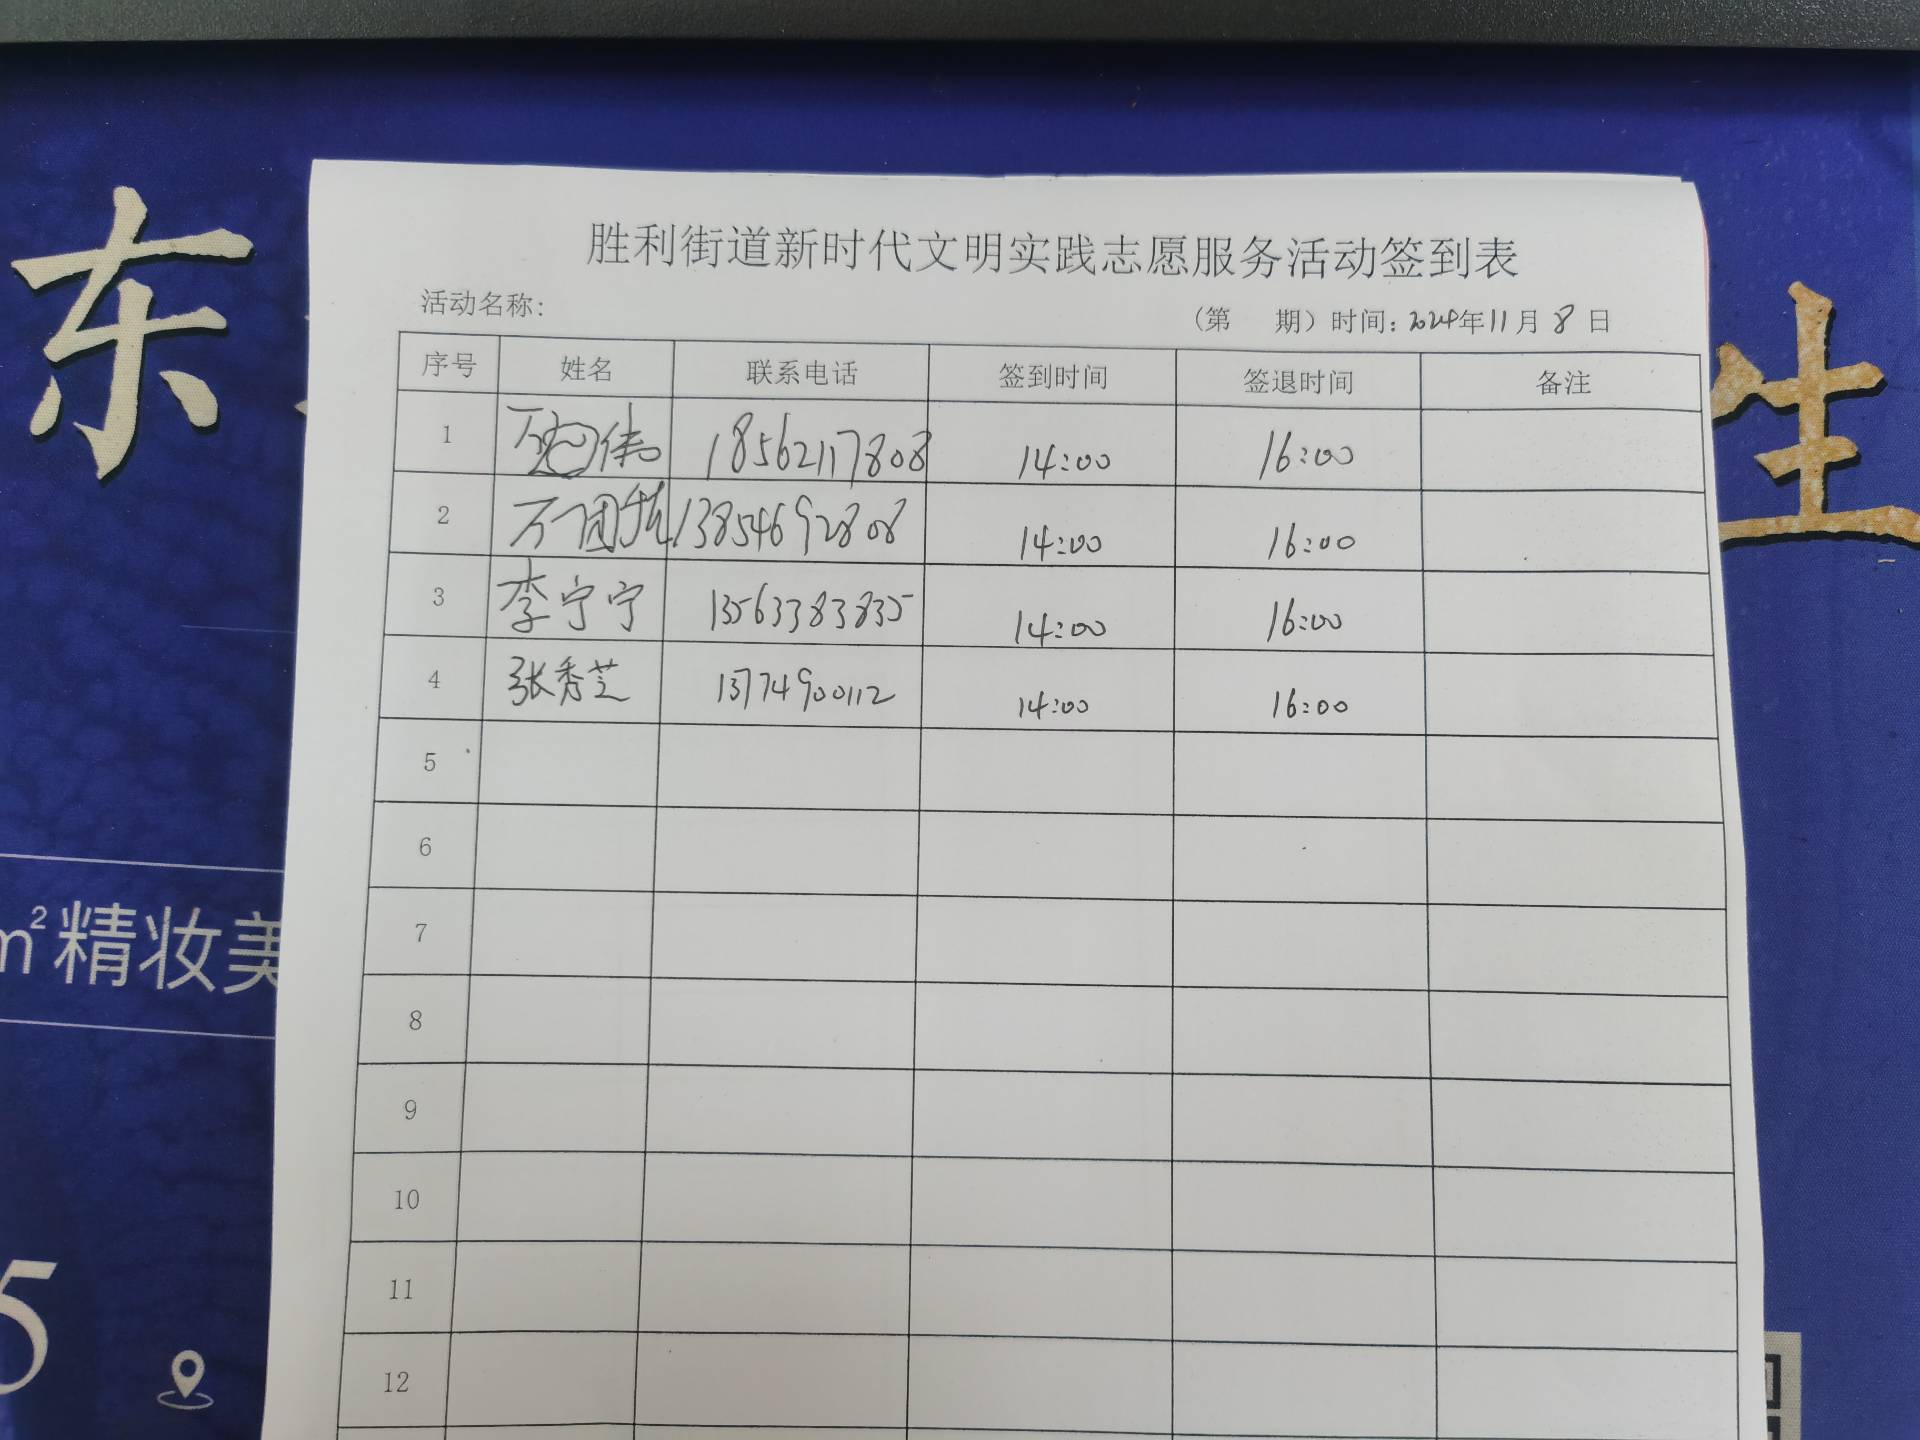 东
生
m²精妆美
5
胜利街道新时代文明实践志愿服务活动签到表
活动名称:
(第 期) 时间: 2024年11月8日
序号 姓名 联系电话 签到时间 签退时间 备注
1 18562117808 14:00 16:00
2 13854692808 14:00 16:00
3 李宁宁 13563383835 14:00 16:00
4 张秀芝 13774900112 14:00 16:00
5
6
7
8
9
10
11
12